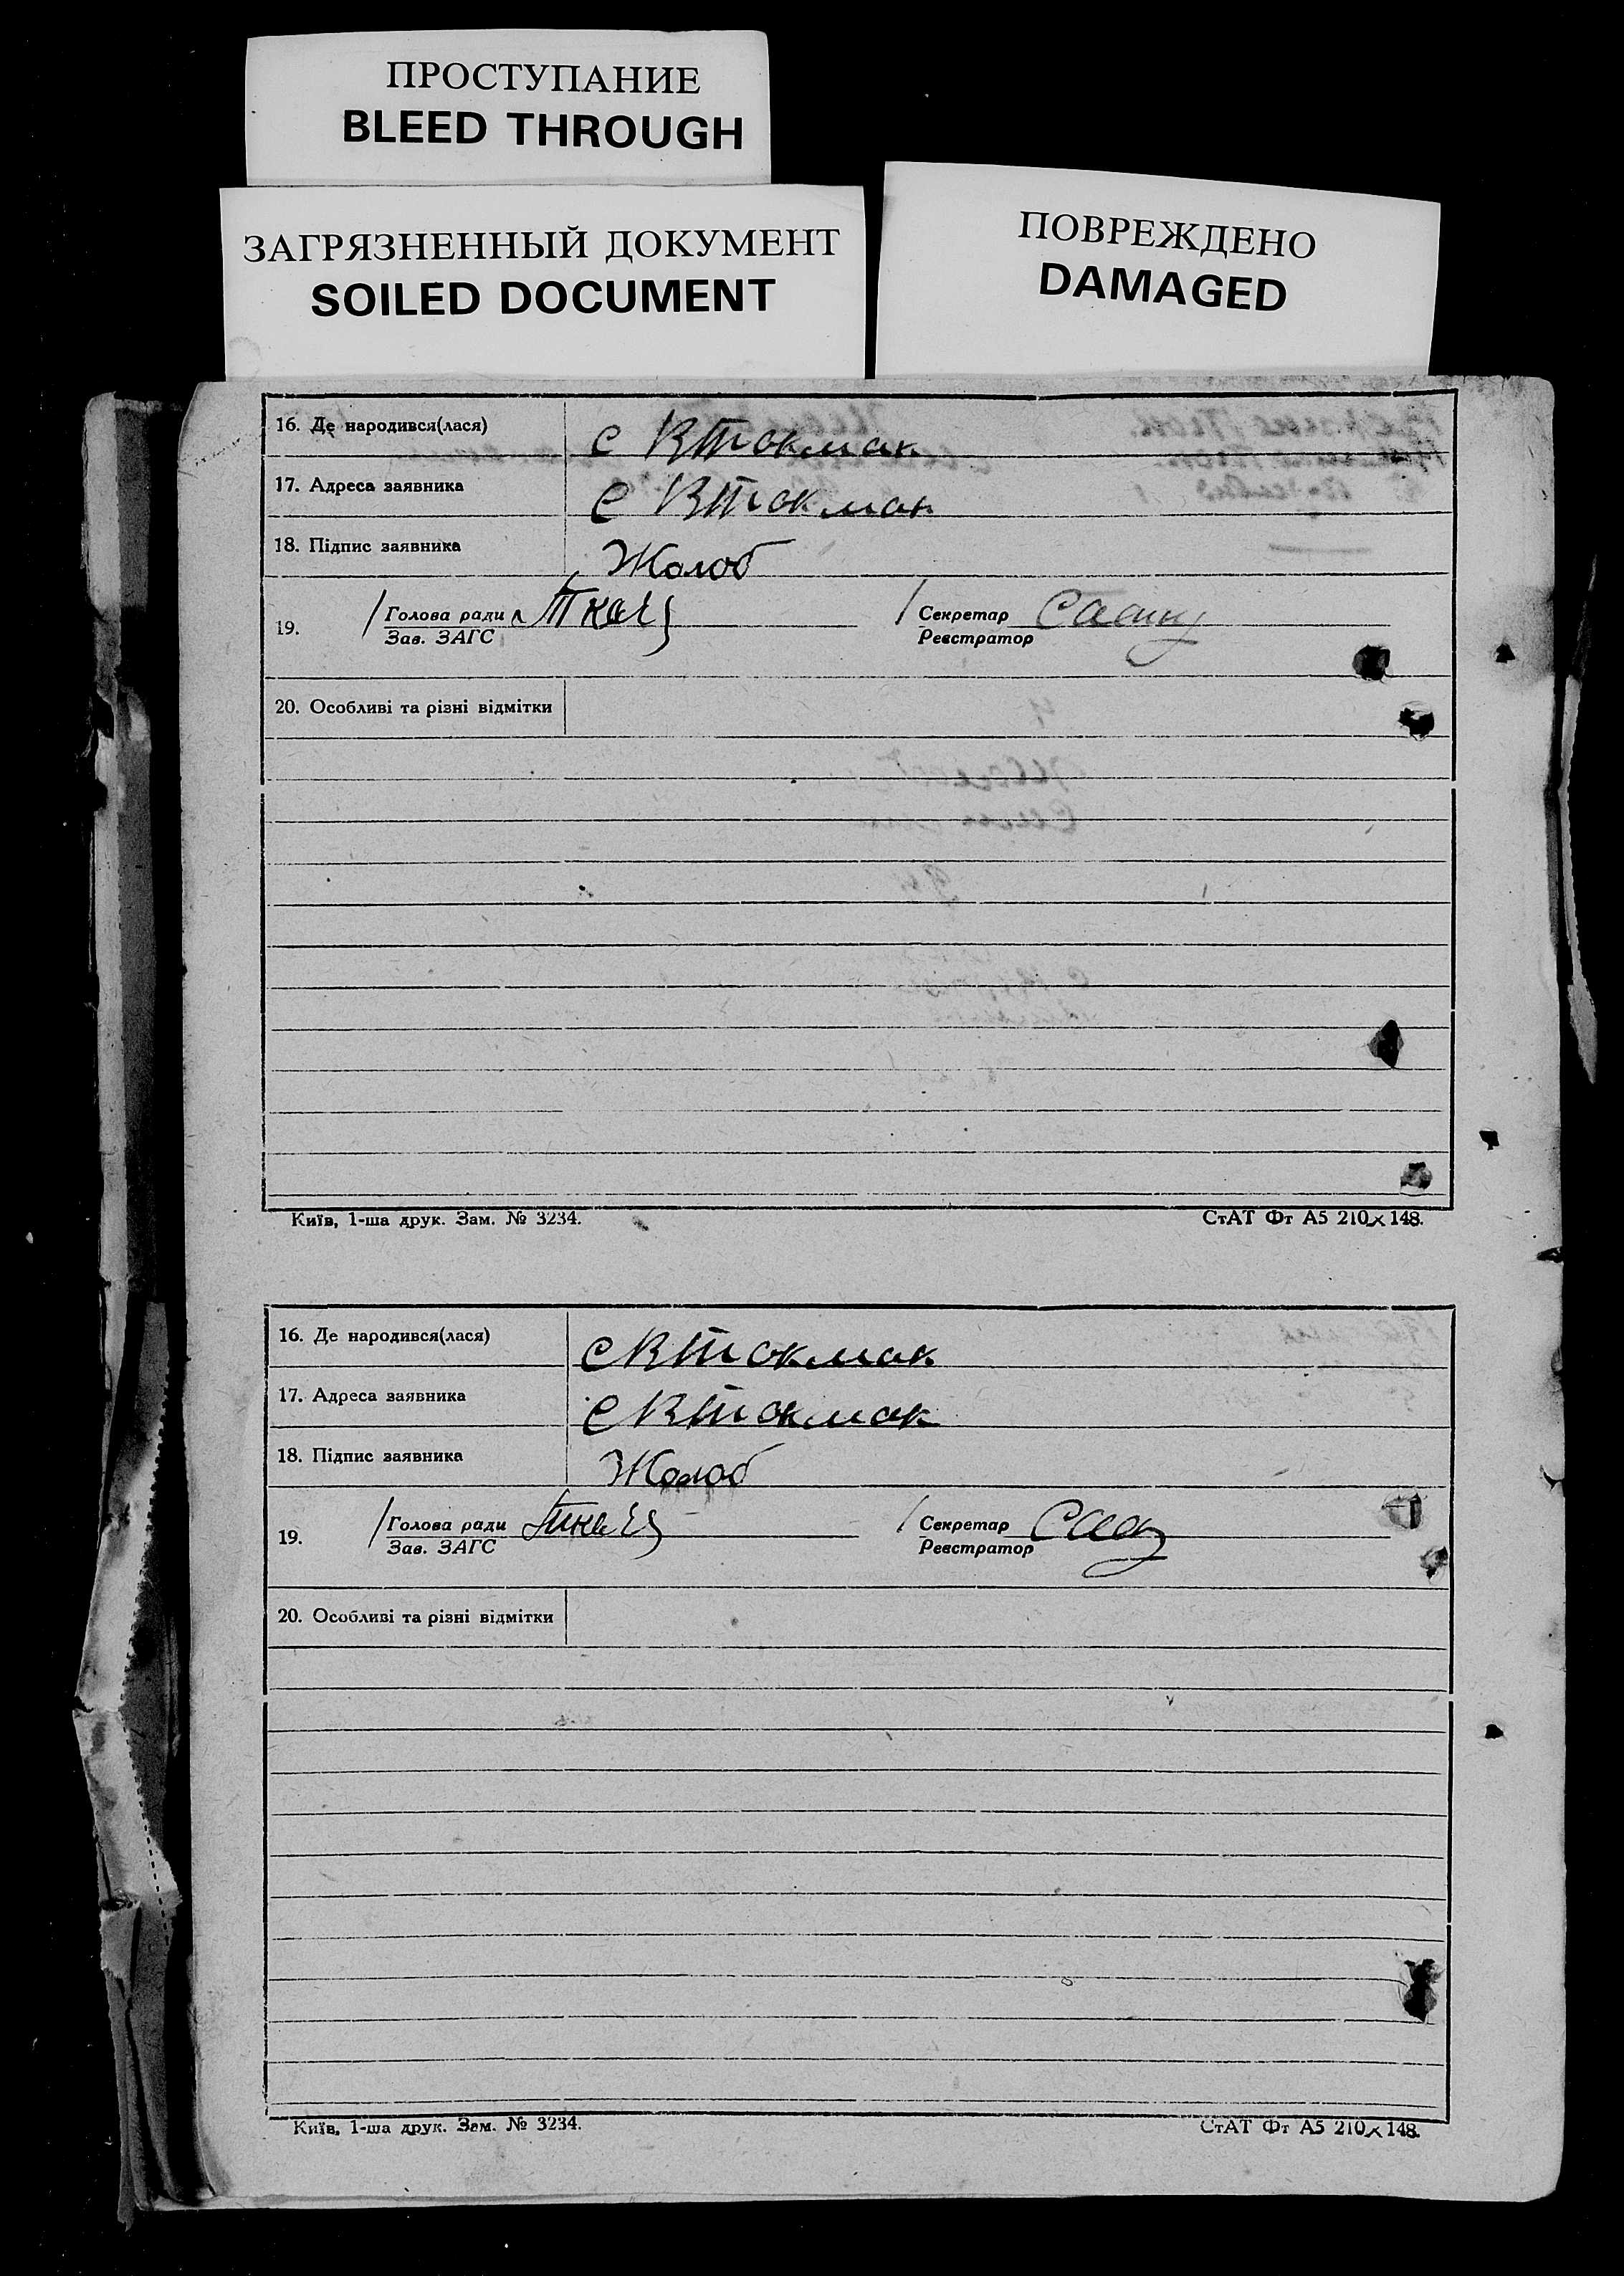 ПРОСТУПАНИЕ
BLEED THROUGH
ЗАГРЯЗНЕННЫЙ ДОКУМЕНТ
SOILED DOCUMENT
ПОВРЕЖДЕНО
DAMAGED
16. Де народився(лася) с ВТокмак
17. Адреса заявника с ВТокмак
18. Підпис заявника Жолоб
19. Голова ради Ткач Секретар
Зав. ЗАГС Реєстратор
20. Особливі та різні відмітки
Київ, 1-ша друк. Зам. № 3234. СтАТ Фт А5 210×148.
16. Де народився(лася) с ВТокмак
17. Адреса заявника с ВТокмак
18. Підпис заявника Жолоб
19. Голова ради Ткач Секретар
Зав. ЗАГС Реєстратор
20. Особливі та різні відмітки
Київ, 1-ша друк. Зам. № 3234. СтАТ Фт А5 210×148.